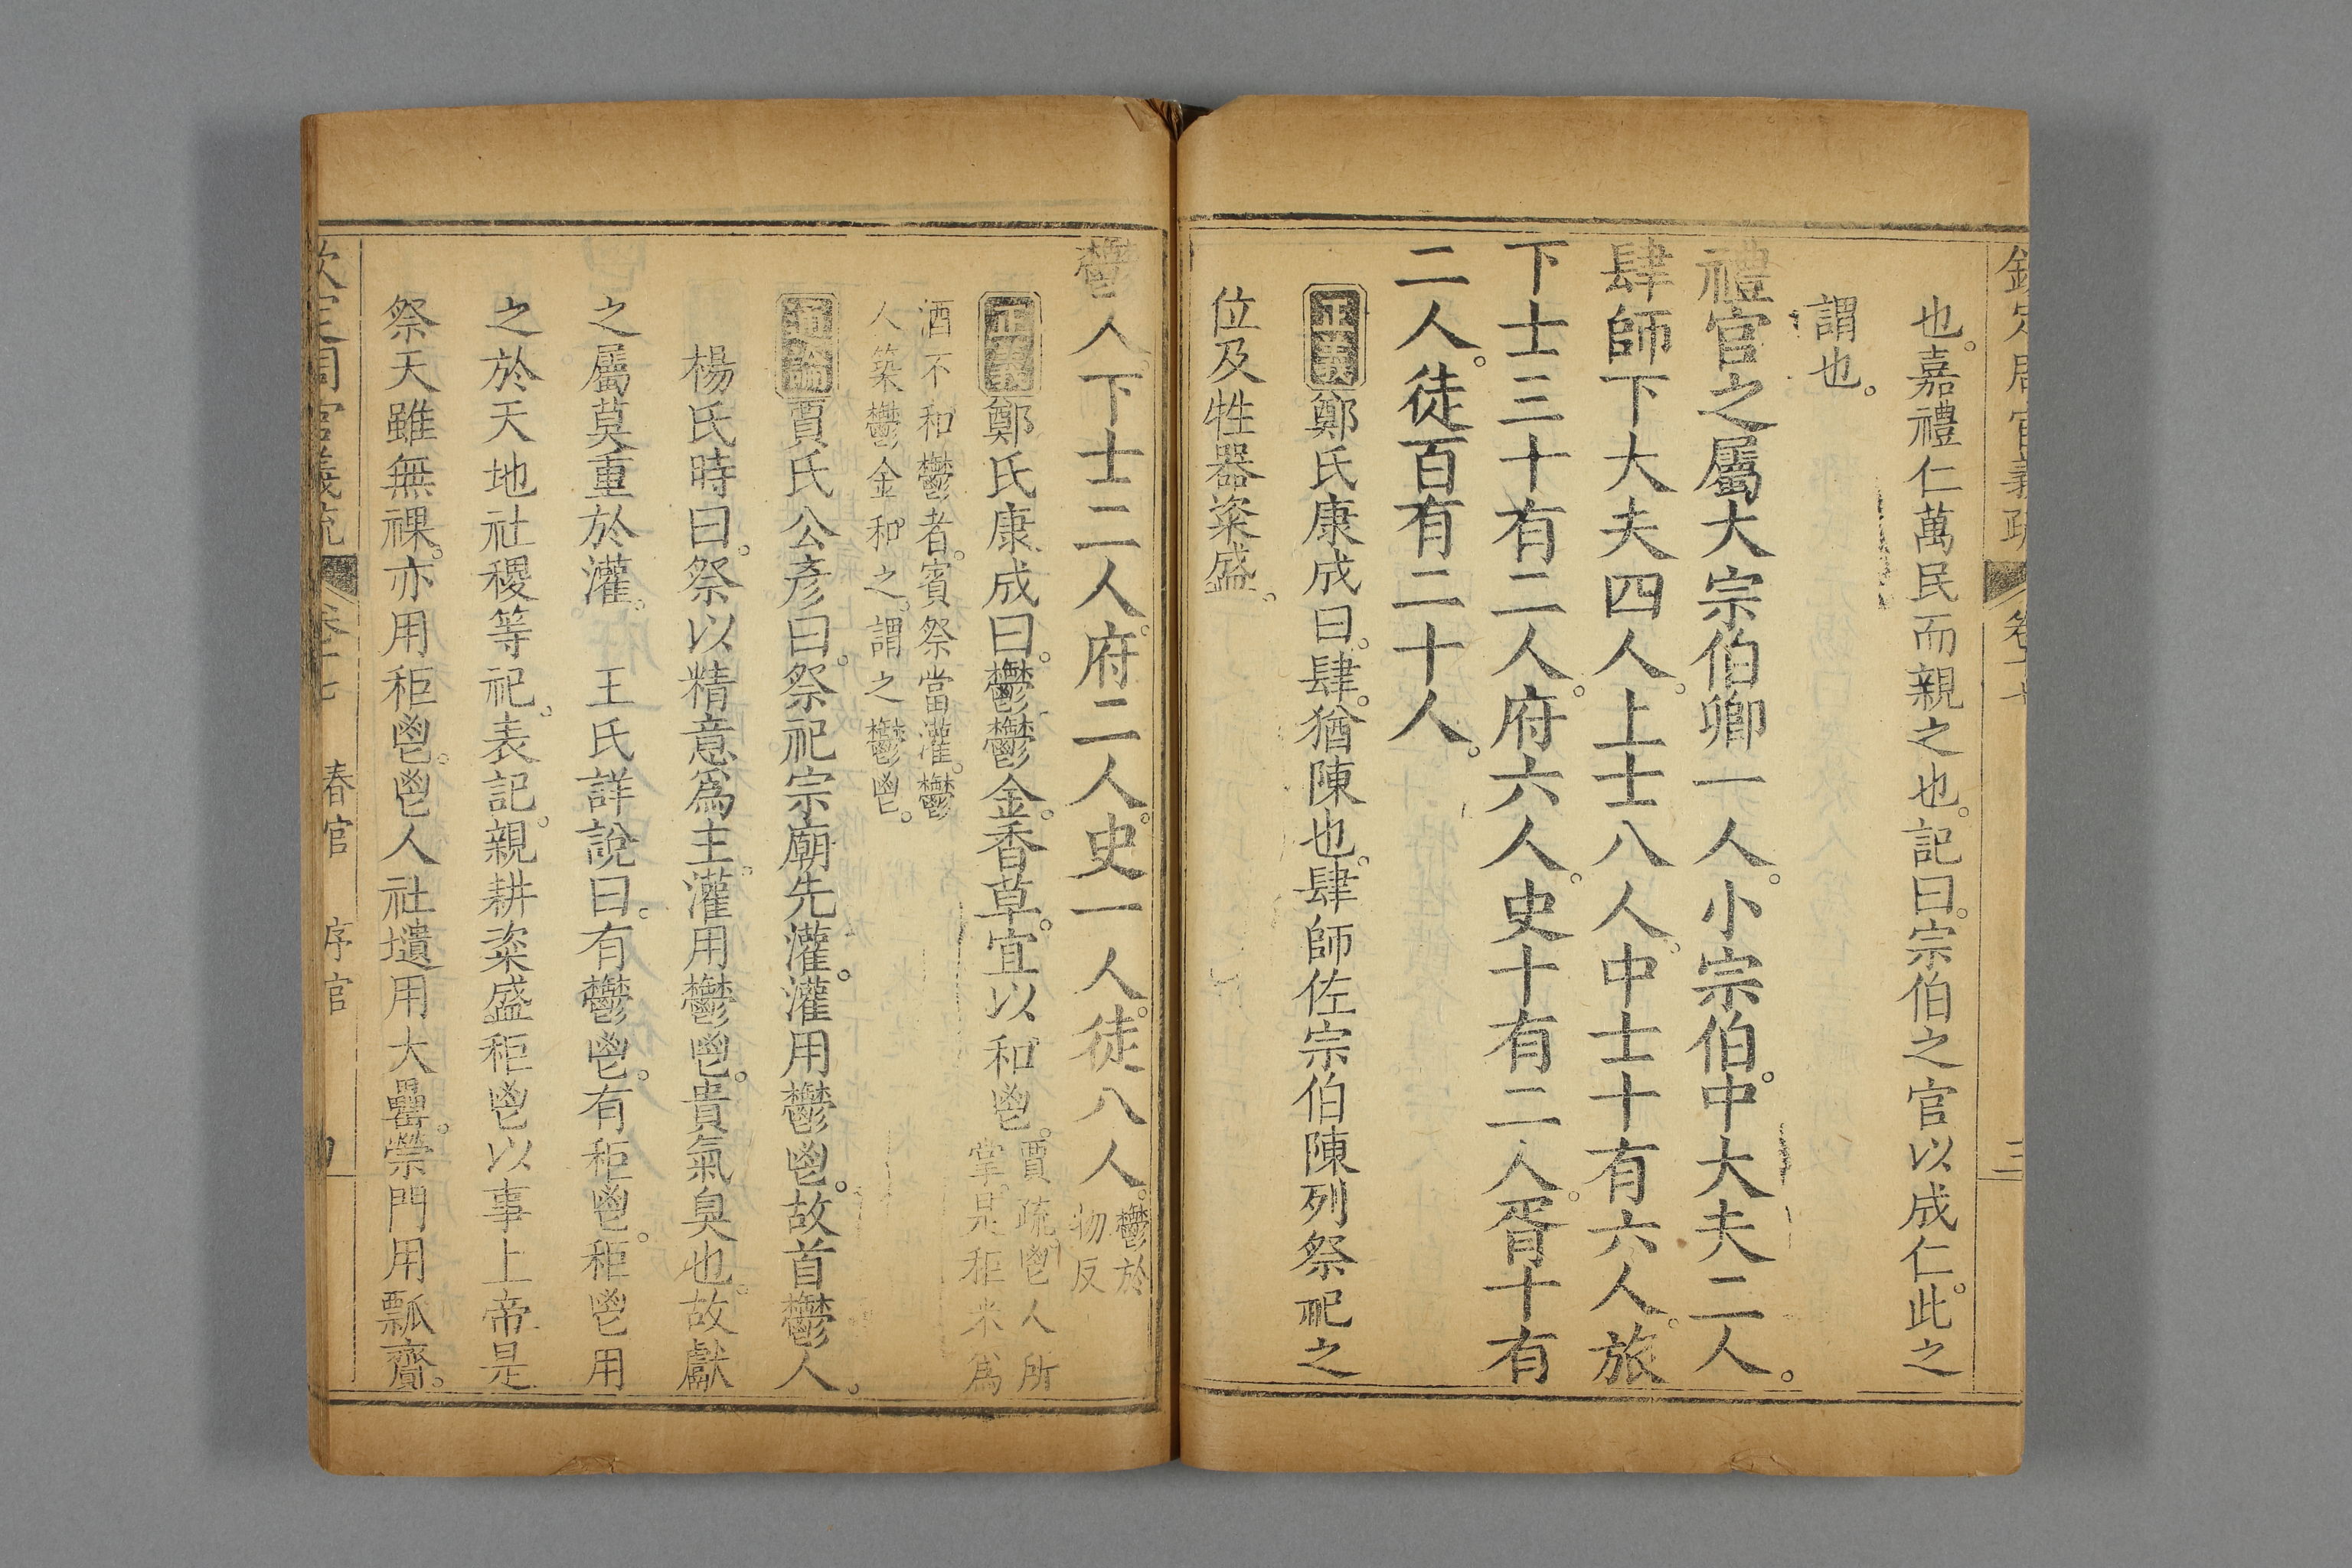 欽定周官義疏 卷十七 三
也。嘉禮仁萬民而親之也。記曰。宗伯之官以成仁。此之
謂也。
禮官之屬大宗伯卿一人。小宗伯。中大夫二人。
肆師下大夫四人。上士八人。中士十有六人。旅
下士三十有二人。府六人。史十有二人。胥十有
二人。徒百有二十人。
正義鄭氏康成曰。肆。猶陳也。肆師佐宗伯陳列祭祀之
位及牲器粢盛。
鬱人。下士二人。府二人。史一人。徒八人。鬱於物反
正義鄭氏康成曰。鬱鬱金。香草。宜以和鬯。賈疏鬯人所掌。是秬米爲
酒不和鬱者。賓祭當灌。鬱人築鬱金和之。謂之鬱鬯。
通論賈氏公彥曰。祭祀宗廟先灌。灌用鬱鬯。故首鬱人。
楊氏時曰。祭以精意爲主。灌用鬱鬯。貴氣臭也。故獻
之屬莫重於灌。 王氏詳說曰。有鬱鬯。有秬鬯。秬鬯用
之於天地社稷等祀。表記。親耕粢盛秬鬯以事上帝是
祭天雖無祼。亦用秬鬯。鬯人社壝用大罍。禜門用瓢齎。
欽定周官義疏 卷十七 春官 序官